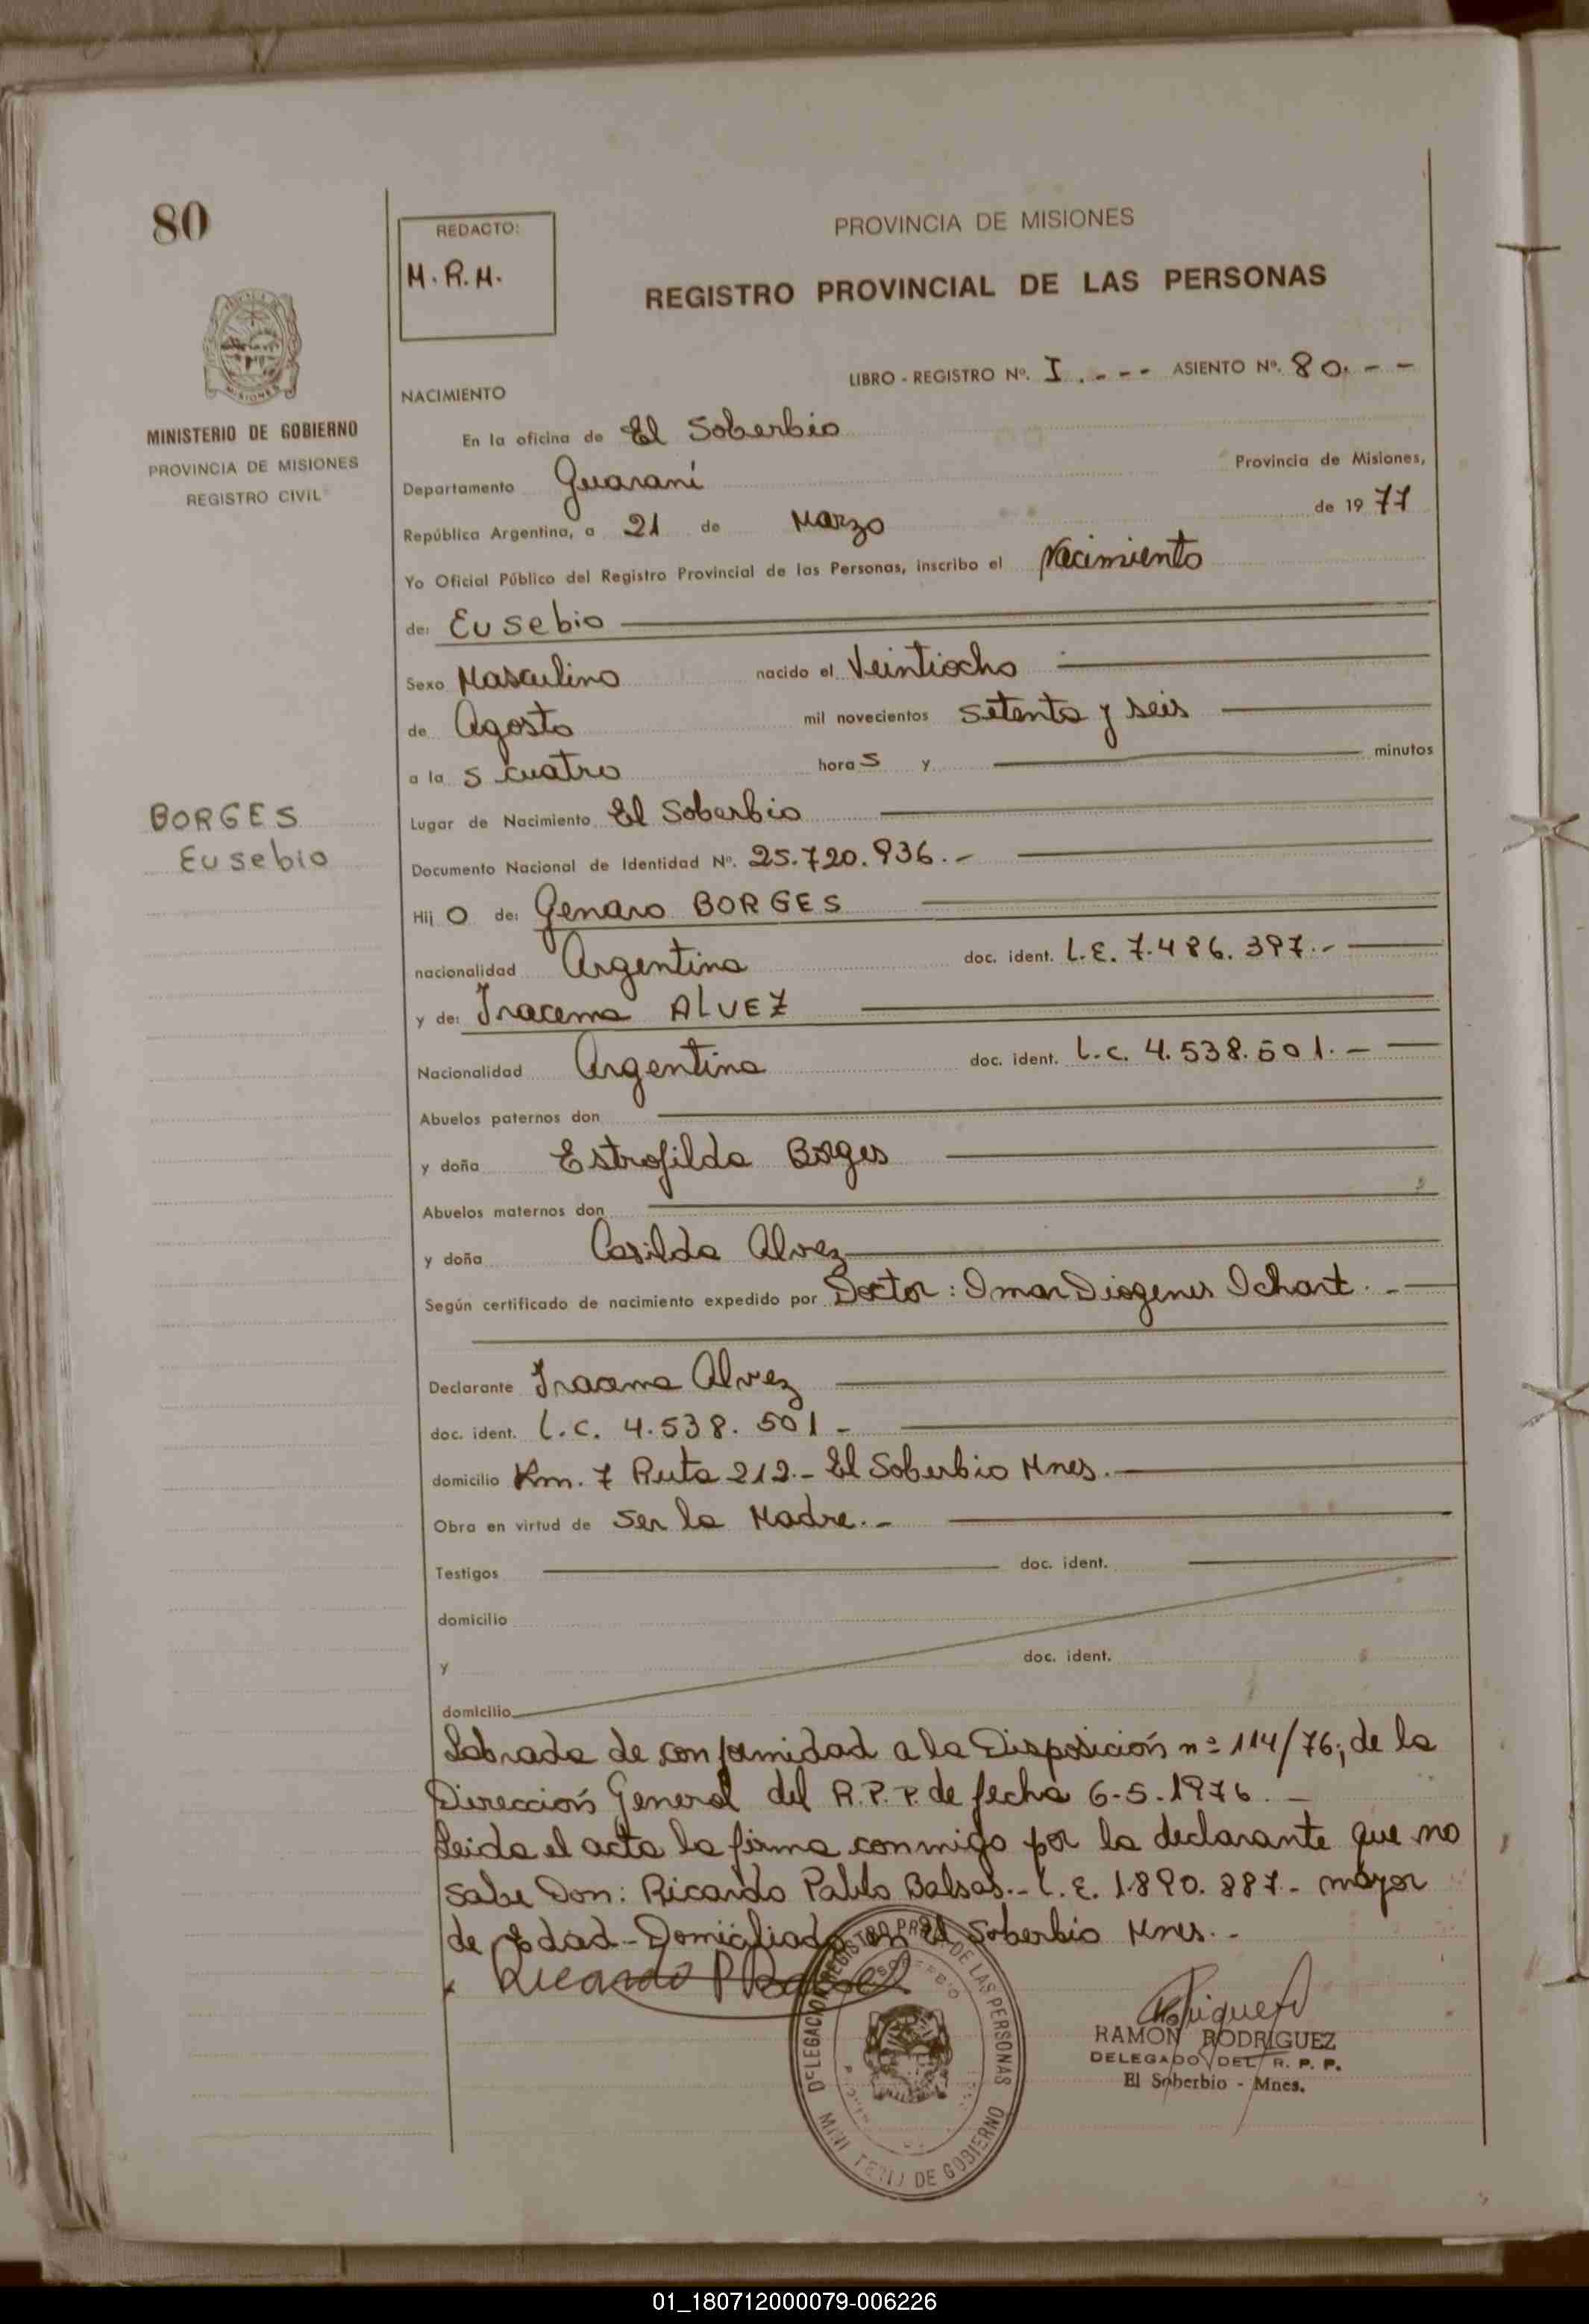 80
REDACTO:
M. R. M.
PROVINCIA DE MISIONES
REGISTRO PROVINCIAL DE LAS PERSONAS
MISIONES
MINISTERIO DE GOBIERNO
PROVINCIA DE MISIONES
REGISTRO CIVIL
LIBRO - REGISTRO Nº. I . - - - ASIENTO Nº. 80. - -
NACIMIENTO
En la oficina de El Soberbio
Departamento Guaraní Provincia de Misiones,
República Argentina, a 21 de Marzo de 19 77
Yo Oficial Público del Registro Provincial de las Personas, inscribo el Nacimiento
de: Eusebio
Sexo Masculino nacido el Veintiocho
de Agosto mil novecientos setenta y seis
a la s cuatro hora s y minutos
Lugar de Nacimiento El Soberbio
BORGES
Eusebio
Documento Nacional de Identidad Nº. 25.720.936.-
Hij o de: Genaro BORGES
nacionalidad Argentina doc. ident. L.E. 7.486.397.-
y de: Iracema ALVEZ
Nacionalidad Argentina doc. ident. L.C. 4.538.501.-
Abuelos paternos don
y doña Estrofilda Borges
Abuelos maternos don
y doña Casilda Alvez
Según certificado de nacimiento expedido por Doctor: Omar Diogenes Ichart.-
Declarante Iracema Alvez
doc. ident. L.C. 4.538.501-
domicilio Km. 7 Ruta 212.- El Soberbio Mnes.
Obra en virtud de ser la Madre.-
Testigos doc. ident.
domicilio
y doc. ident.
domicilio
Labrada de conformidad a la Disposición nº 114/76; de la
Dirección General del R.P.P. de fecha 6-5-1976.-
Leida el acta la firma conmigo por la declarante que no
sabe Don: Ricardo Pablo Balsas.- L.E. 1.890.887- mayor
de Edad - Domiciliado en El Soberbio Mnes.-
Ricardo P
DELEGACION REGISTRO PROV. DE LAS PERSONAS
MINISTERIO DE GOBIERNO
RAMON RODRIGUEZ
DELEGADO DEL R. P. P.
El Soberbio - Mnes.
01_180712000079-006226